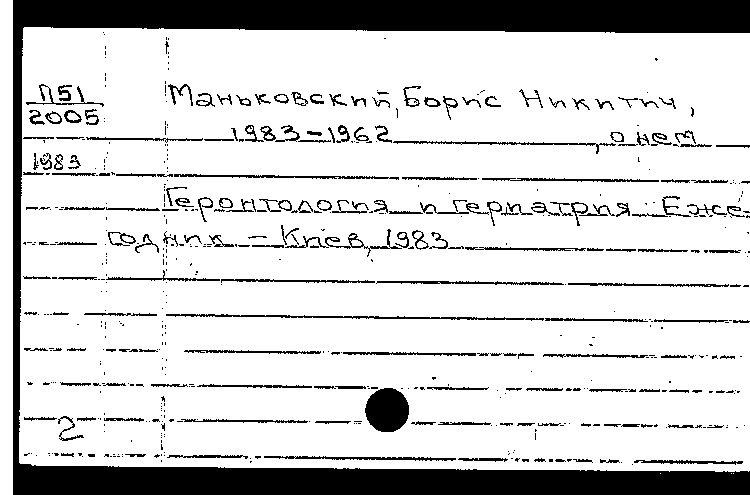 П51
2005
1983
Маньковский, Борис Никитич,
1983-1962 , о нем
Геронтология и гериатрия. Еже
годник - Киев, 1983
2